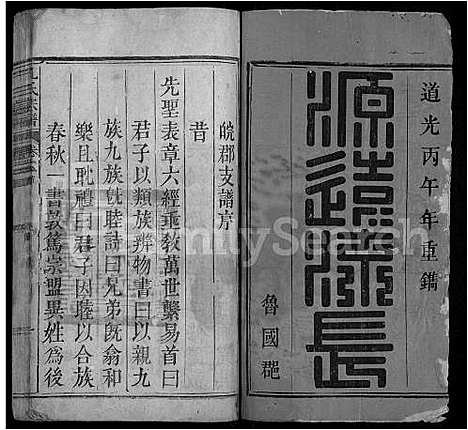 道光丙午年重鐫
源遠流長
魯國郡
皖郡支譜序
昔
先聖表章六經垂教萬世繫易首曰
君子以類族辨物書曰以親九
族九族既睦詩曰兄弟既翕和
樂且耽禮曰君子因睦以合族
春秋一書敦篤宗盟異姓為後
氏宗譜
FamilySearch